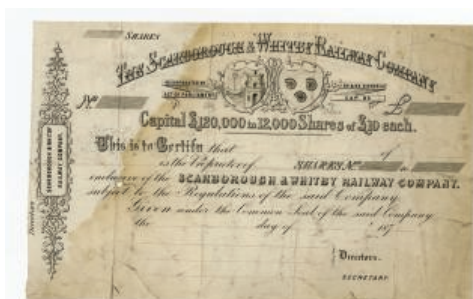 SHARES
THE SCARBOROUGH & WHITBY RAILWAY COMPANY
INCORPORATED BY
ACT OF PARLIAMENT
CAP.
No £
Capital £120,000 in 12,000 Shares of £10 each.
This is to Certify that of
is the Proprietor of SHARES No to
inclusive of the SCARBOROUGH & WHITBY RAILWAY COMPANY.
subject to the Regulations of the said Company.
Given under the Common Seal of the said Company
the day of 187
Directors.
SECRETARY
SCARBOROUGH & WHITBY
RAILWAY COMPANY.
Directors